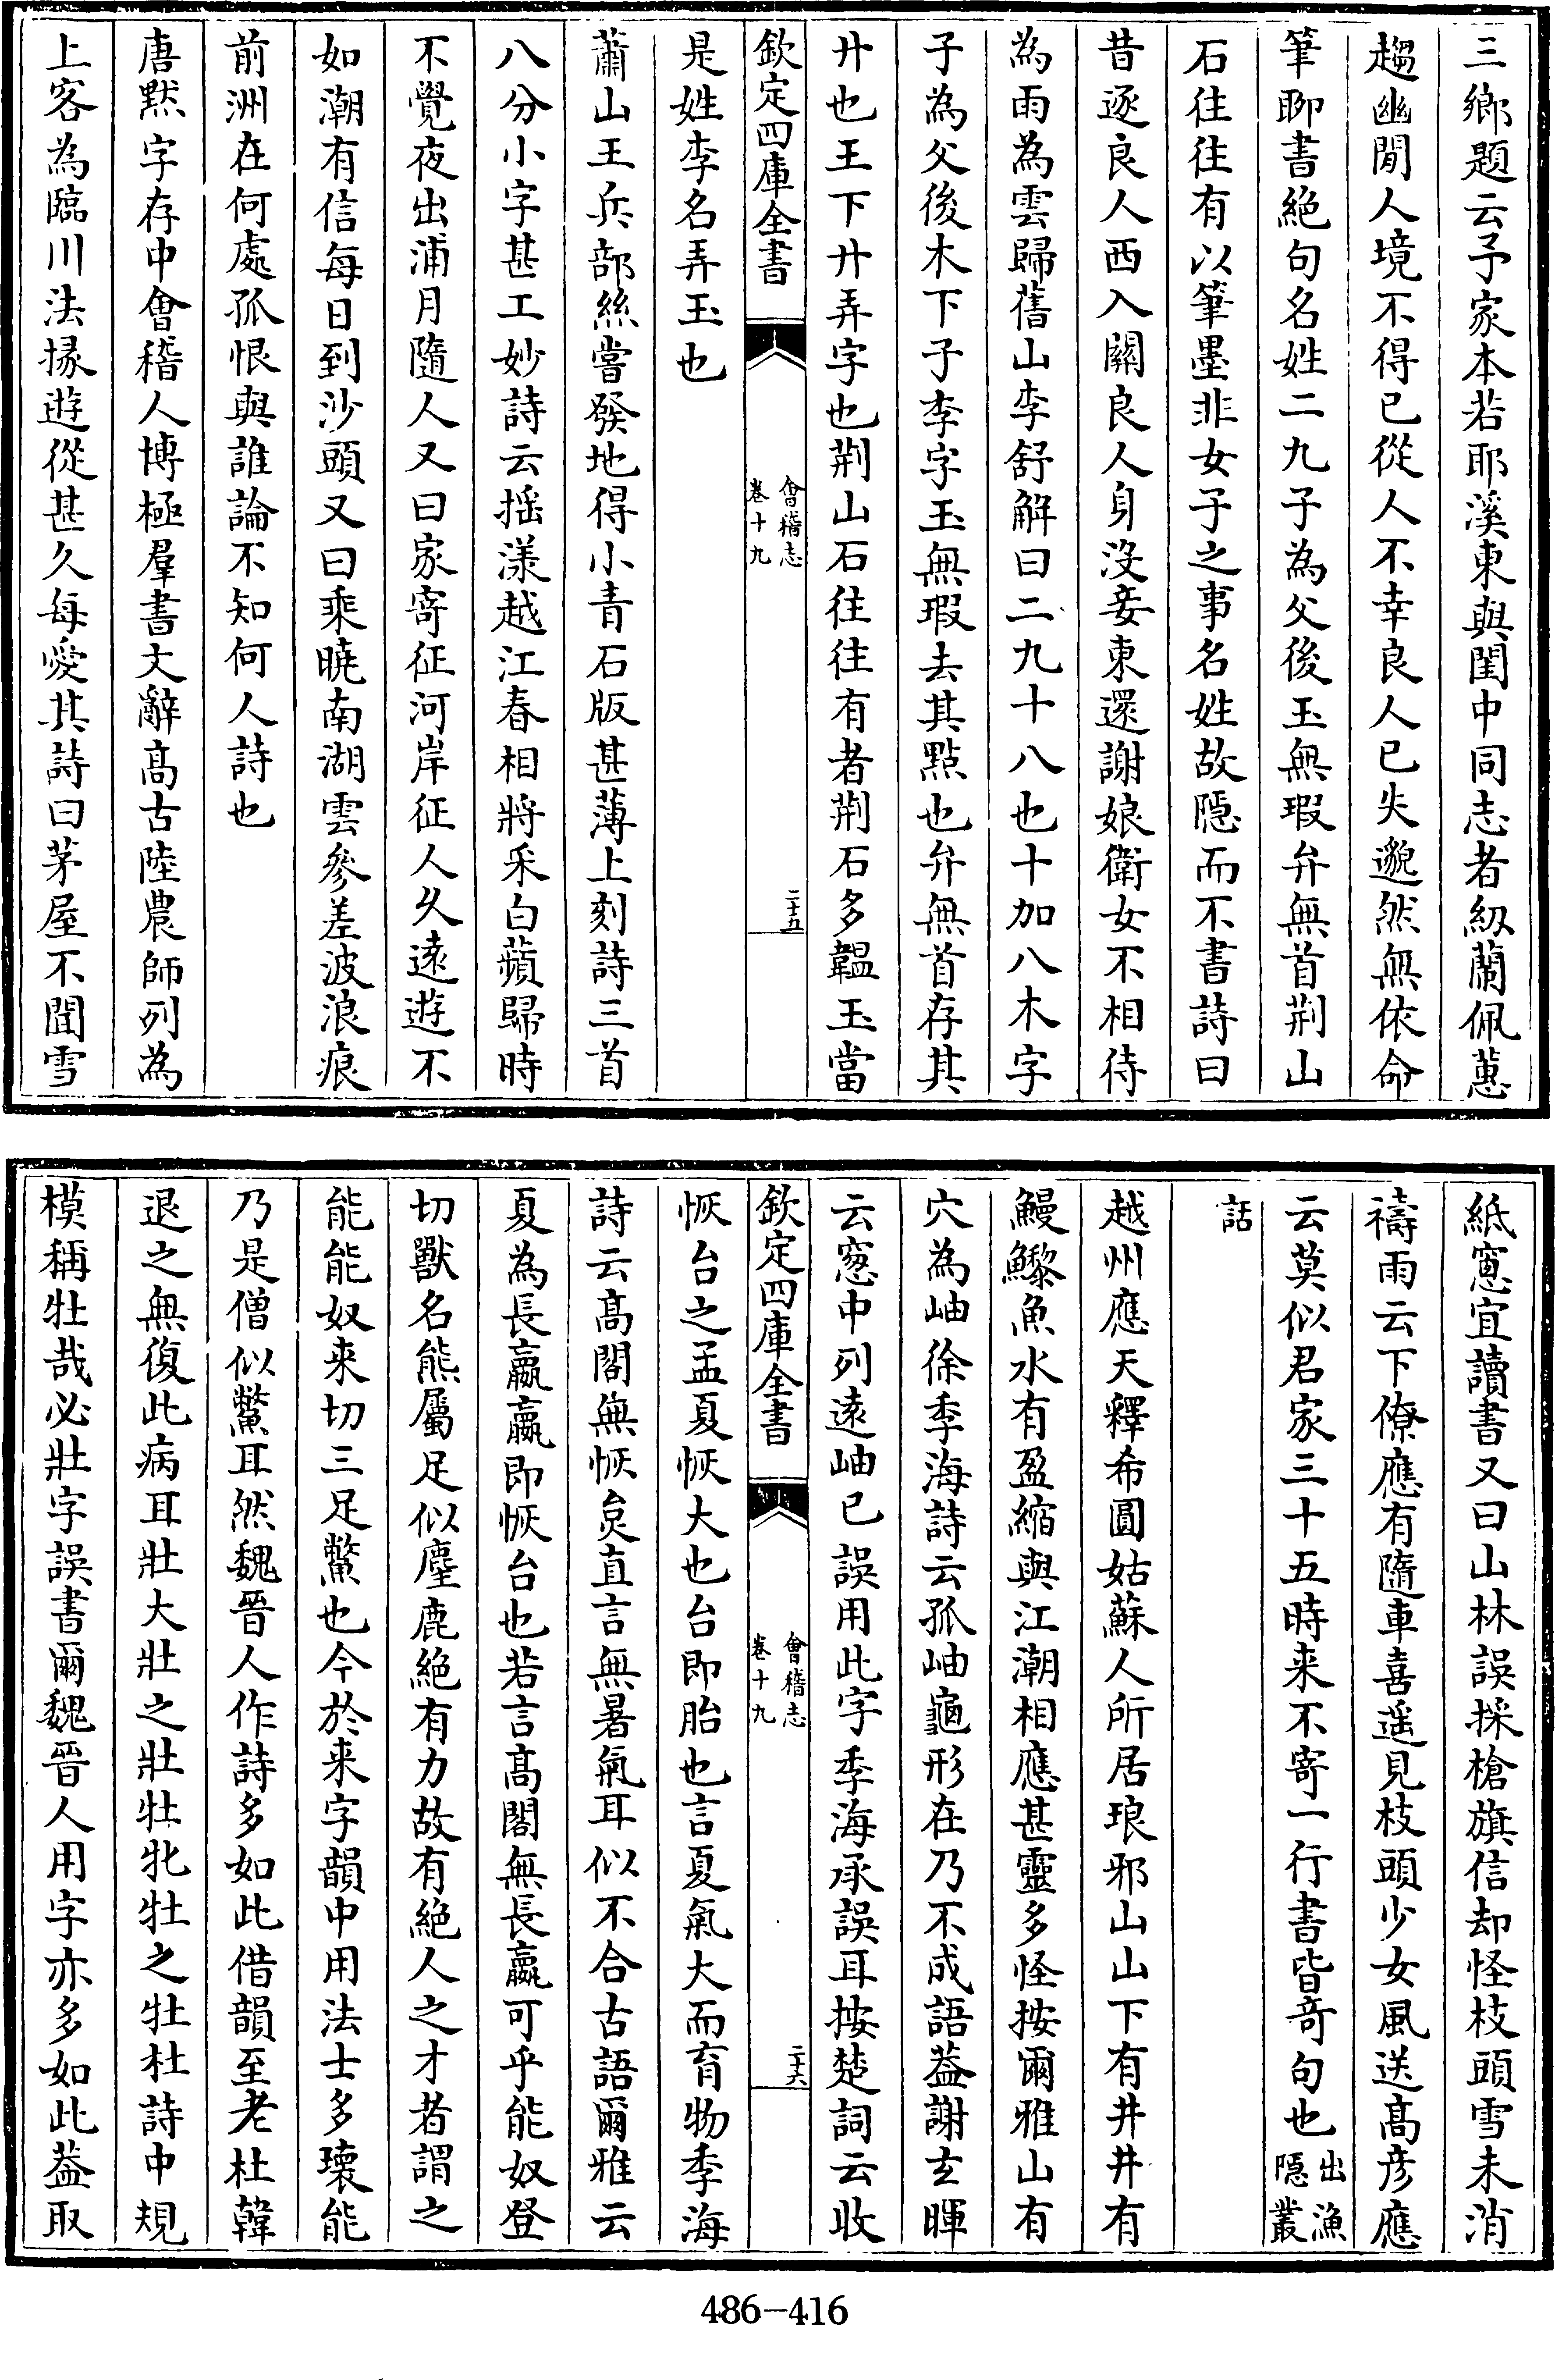 三鄉題云予家本若耶溪東與閨中同志者紉蘭佩蕙
趨幽閒人境不得已從人不幸良人已失邈然無依命
筆聊書絕句名姓二九子為父後玉無瑕弁無首荆山
石往往有以筆墨非女子之事名姓故隱而不書詩曰
昔逐良人西入關良人身沒妾東還謝娘衛女不相待
為雨為雲歸舊山李舒解曰二九十八也十加八木字
子為父後木下子李字玉無瑕去其點也弁無首存其
廾也王下廾弄字也荆山石往往有者荆石多韞玉當
欽定四庫全書
會稽志
卷十九
二十五
是姓李名弄玉也
蕭山王兵部絲嘗發地得小青石版甚薄上刻詩三首
八分小字甚工妙詩云揺漾越江春相將采白蘋歸時
不覺夜出浦月隨人又曰家寄征河岸征人久遠遊不
如潮有信每日到沙頭又曰乘曉南湖雲參差波浪痕
前洲在何處孤恨與誰論不知何人詩也
唐黙字存中會稽人博極羣書文辭髙古陸農師列為
上客為臨川法掾遊從甚久每愛其詩曰茅屋不聞雪
紙窻宜讀書又曰山林誤採槍旗信却怪枝頭雪未消
禱雨云下僚應有隨車喜遥見枝頭少女風送髙彦應
云莫似君家三十五時来不寄一行書皆竒句也出漁
隱叢
話
越州應天釋希圓姑蘇人所居琅邪山山下有井井有
鰻鱺魚水有盈縮與江潮相應甚靈多怪按爾雅山有
穴為岫徐季海詩云孤岫龜形在乃不成語葢謝玄暉
云窓中列遠岫已誤用此字季海承誤耳按楚詞云收
欽定四庫全書
會稽志
卷十九
二十六
恢台之孟夏恢大也台即胎也言夏氣大而育物季海
詩云髙閣無恢炱直言無暑氣耳似不合古語爾雅云
夏為長嬴嬴即恢台也若言髙閣無長嬴可乎能奴登
切獸名熊屬足似麈鹿絶有力故有絶人之才者謂之
能能奴来切三足鱉也今於来字韻中用法士多瓌能
乃是僧似鱉耳然魏晉人作詩多如此借韻至老杜韓
退之無復此病耳壯大壯之壯牡牝牡之牡杜詩中規
模稱牡哉必壯字誤書爾魏晉人用字亦多如此葢取
486-416